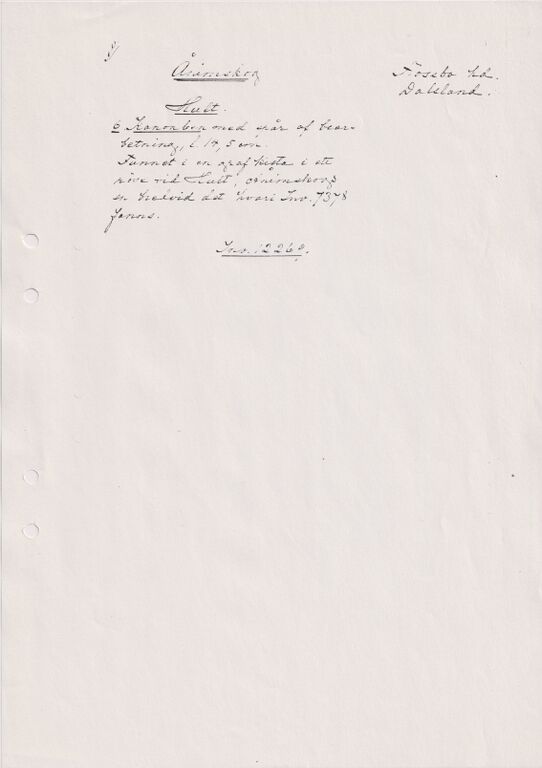 8/
Ånimskog
Tössbo hd.
Dalsland.
Hult.
6 Kanonben med spår af bear-
betning, l. 14,5 cm.
Funnet i en grafkista i ett
röse vid Hult, Ånimskog,
en bredvid det hvari Inv. 7378
fanns.
Inv. 12268.